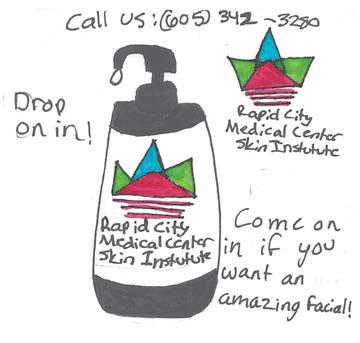 Call us: (605) 342-3280
Drop
on in!
Rapid City
Medical Center
Skin Instutute
Rapid City
Medical Center
Skin Instutute
Come on
in if you
want an
amazing facial!